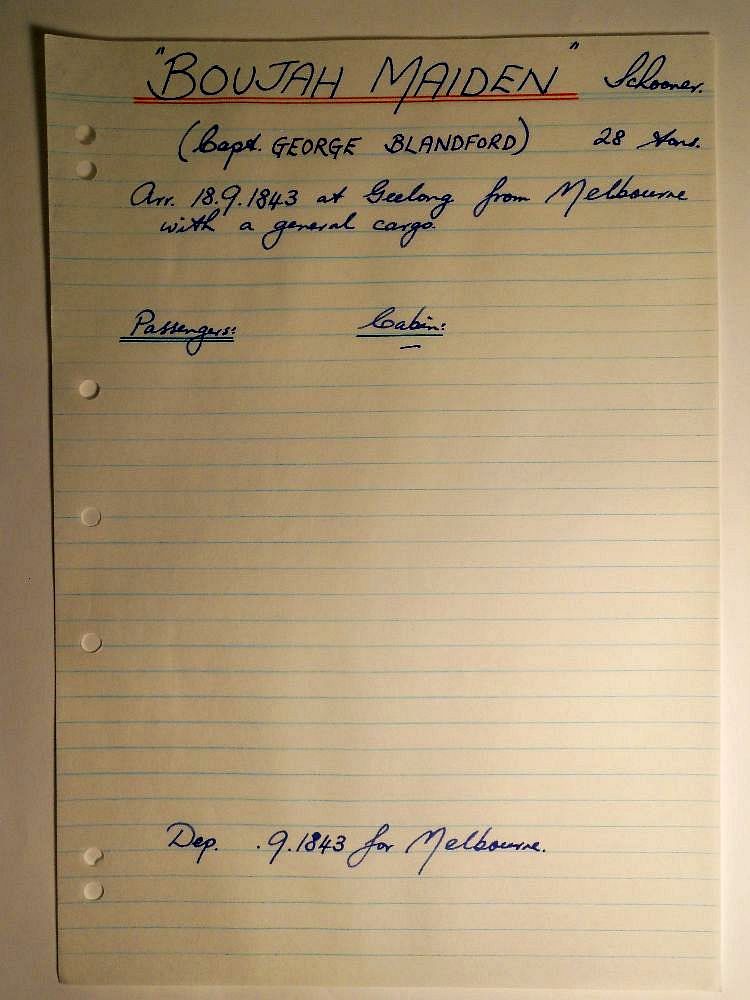 "BOUJAH MAIDEN" Schooner.
(Capt. GEORGE BLANDFORD) 28 tons.
Arr. 18.9.1843 at Geelong from Melbourne
with a general cargo.
Passengers: Cabin:
—
Dep. .9.1843 for Melbourne.